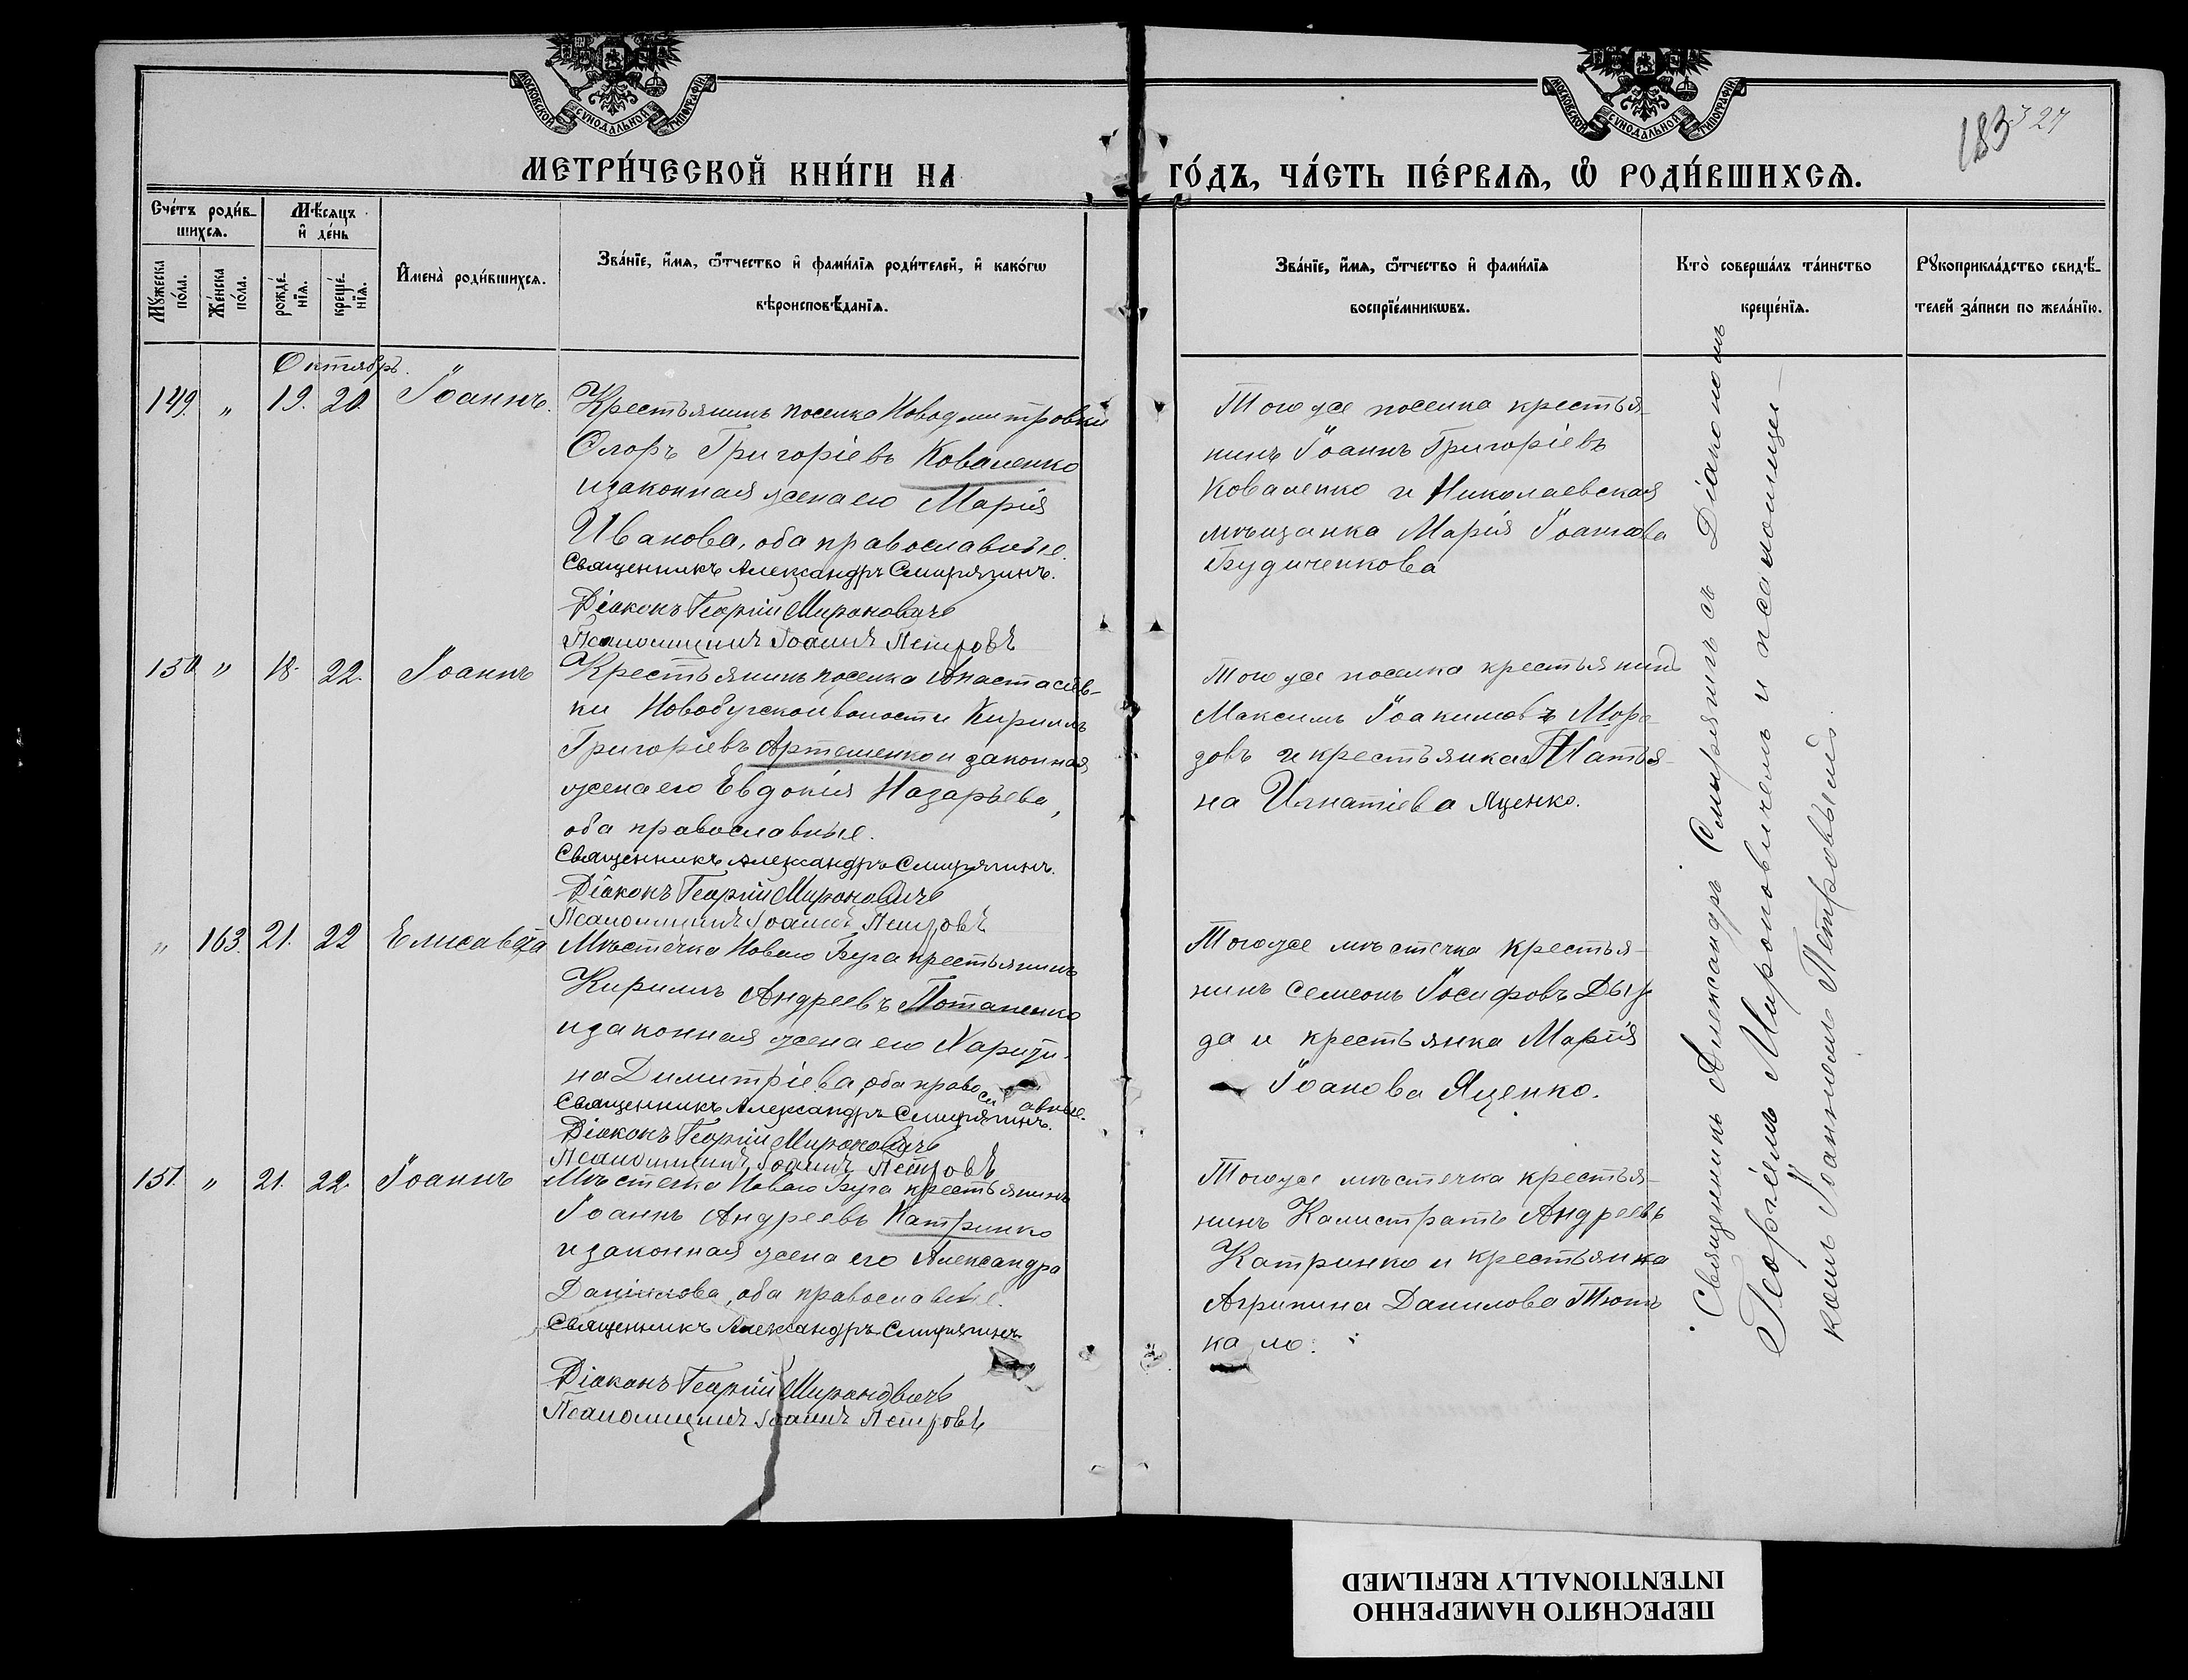 МОСКОВСКОЙ СѴНОДАЛЬНОЙ ТИПОГРАФІИ
МОСКОВСКОЙ СѴНОДАЛЬНОЙ ТИПОГРАФІИ
183
327
МЕТРИ́ЧЕСКОЙ КНИ́ГИ НА
ГО́ДЪ, ЧА́СТЬ ПЕ́РВАѦ, Ѡ҆ РОДИ́ВШИХСѦ.
Сче́тъ роди́в-
шихсѧ.
Мѣ́сѧцъ
и҆ де́нь
Мꙋ́жеска
по́ла.
Же́нска
по́ла.
рожде́-
нїѧ.
креще́-
нїѧ.
И҆мена̀ роди́вшихсѧ.
Зва́нїе, и҆́мѧ, ѻ҆́тчество и҆ фами́лїѧ роди́телей, и҆ како́гѡ
вѣроисповѣ́данїѧ.
Зва́нїе, и҆́мѧ, ѻ҆́тчество и҆ фами́лїѧ
воспрїе́мникѡвъ.
Кто̀ соверша́лъ та́инство
креще́нїѧ.
Рꙋкоприкла́дство свидѣ́-
телей за́писи по жела́нїю.
Октябрь.
149. „ 19. 20. Іоаннъ.
Крестьянинъ поселка Новодмитровки
Григоріевъ Коваленко
и законная жена его Марія
Иванова, оба православные.
Священникъ Александръ Смирягинъ.
Діаконъ Георгій Мироновичъ
Псаломщикъ Іоаннъ Петровъ
Того же поселка крестья-
нинъ Іоаннъ Григоріевъ
Коваленко и Николаевская
мѣщанка Марія Іоаннова
Будиченкова
150 „ 18. 22. Іоаннъ
Крестьянинъ поселка Анастасьев-
ки Новобугской волости Кириллъ
Григоріевъ Артёменко и законная
жена его Евдокія Назарьева,
оба православные.
Священникъ Александръ Смирягинъ.
Діаконъ Георгій Мироновичъ
Псаломщикъ Іоаннъ Петровъ
Того же поселка крестьянинъ
Максимъ Іоакимовъ Моро-
зовъ и крестьянка Татья-
на Игнатіева Яценко.
„ 163. 21. 22 Елисавета
Мѣстечка Новаго Буга крестьянинъ
Кириллъ Андреевъ Потапенко
и законная жена его Харити-
на Димитріева, оба православные.
Священникъ Александръ Смирягинъ.
Діаконъ Георгій Мироновичъ
Псаломщикъ Іоаннъ Петровъ
Того же мѣстечка крестья-
нинъ Семеонъ Іосифовъ
да и крестьянка Марія
Іоанова Яценко.
151. „ 21. 22. Іоаннъ
Мѣстечка Новаго Буга крестьянинъ
Іоаннъ Андреевъ Катринко
и законная жена его Александра
Даниилова, оба православные.
Священникъ Александръ Смирягинъ
Діаконъ Георгій Мироновичъ
Псаломщикъ Іоаннъ Петровъ
Того же мѣстечка крестья-
нинъ Калистратъ Андреевъ
Катринко и крестьянка
Агрипина Данилова
Священникъ Александръ Смирягинъ съ Діакономъ
Георгіемъ Мироновичемъ и псаломщи-
комъ Іоанномъ Петровымъ.
ПЕРЕСНЯТО НАМЕРЕННО
INTENTIONALLY REFILMED